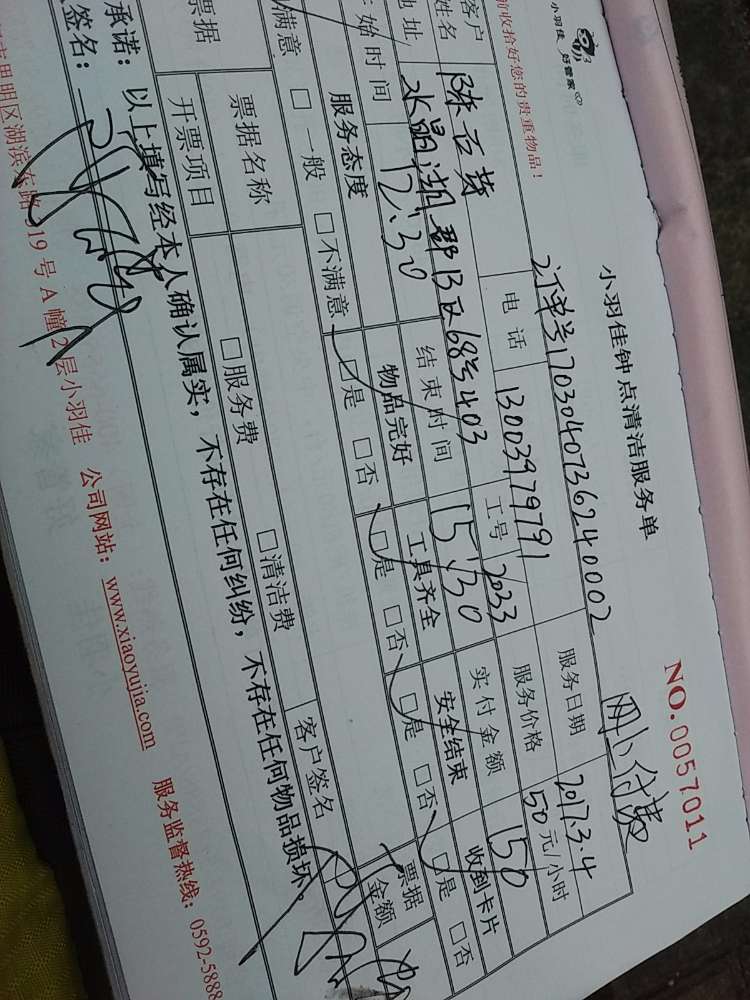 小羽佳 好管家
NO.0057011
小羽佳钟点清洁服务单
收拾好您的贵重物品!
订单号1703040736240002 网上付费
客户姓名 电话 13003979791 服务日期 2017.3.4
地址 水晶湖郡B区68号403 工号 2033 服务价格 50元/小时
始时间 12:30 结束时间 15:30 实付金额 150
服务态度 物品完好 工具齐全 安全结束 收到卡片
满意 □一般 □不满意 □是 □否 □是 □否 □是 □否 □是 □否
票据 票据名称 □服务费 □清洁费 票据金额
开票项目 客户签名
承诺:以上填写经本人确认属实,不存在任何纠纷,不存在任何物品损坏。
签名:
思明区湖滨东路319号A幢2层小羽佳 公司网站:www.xiaoyujia.com 服务监督热线:0592-5888